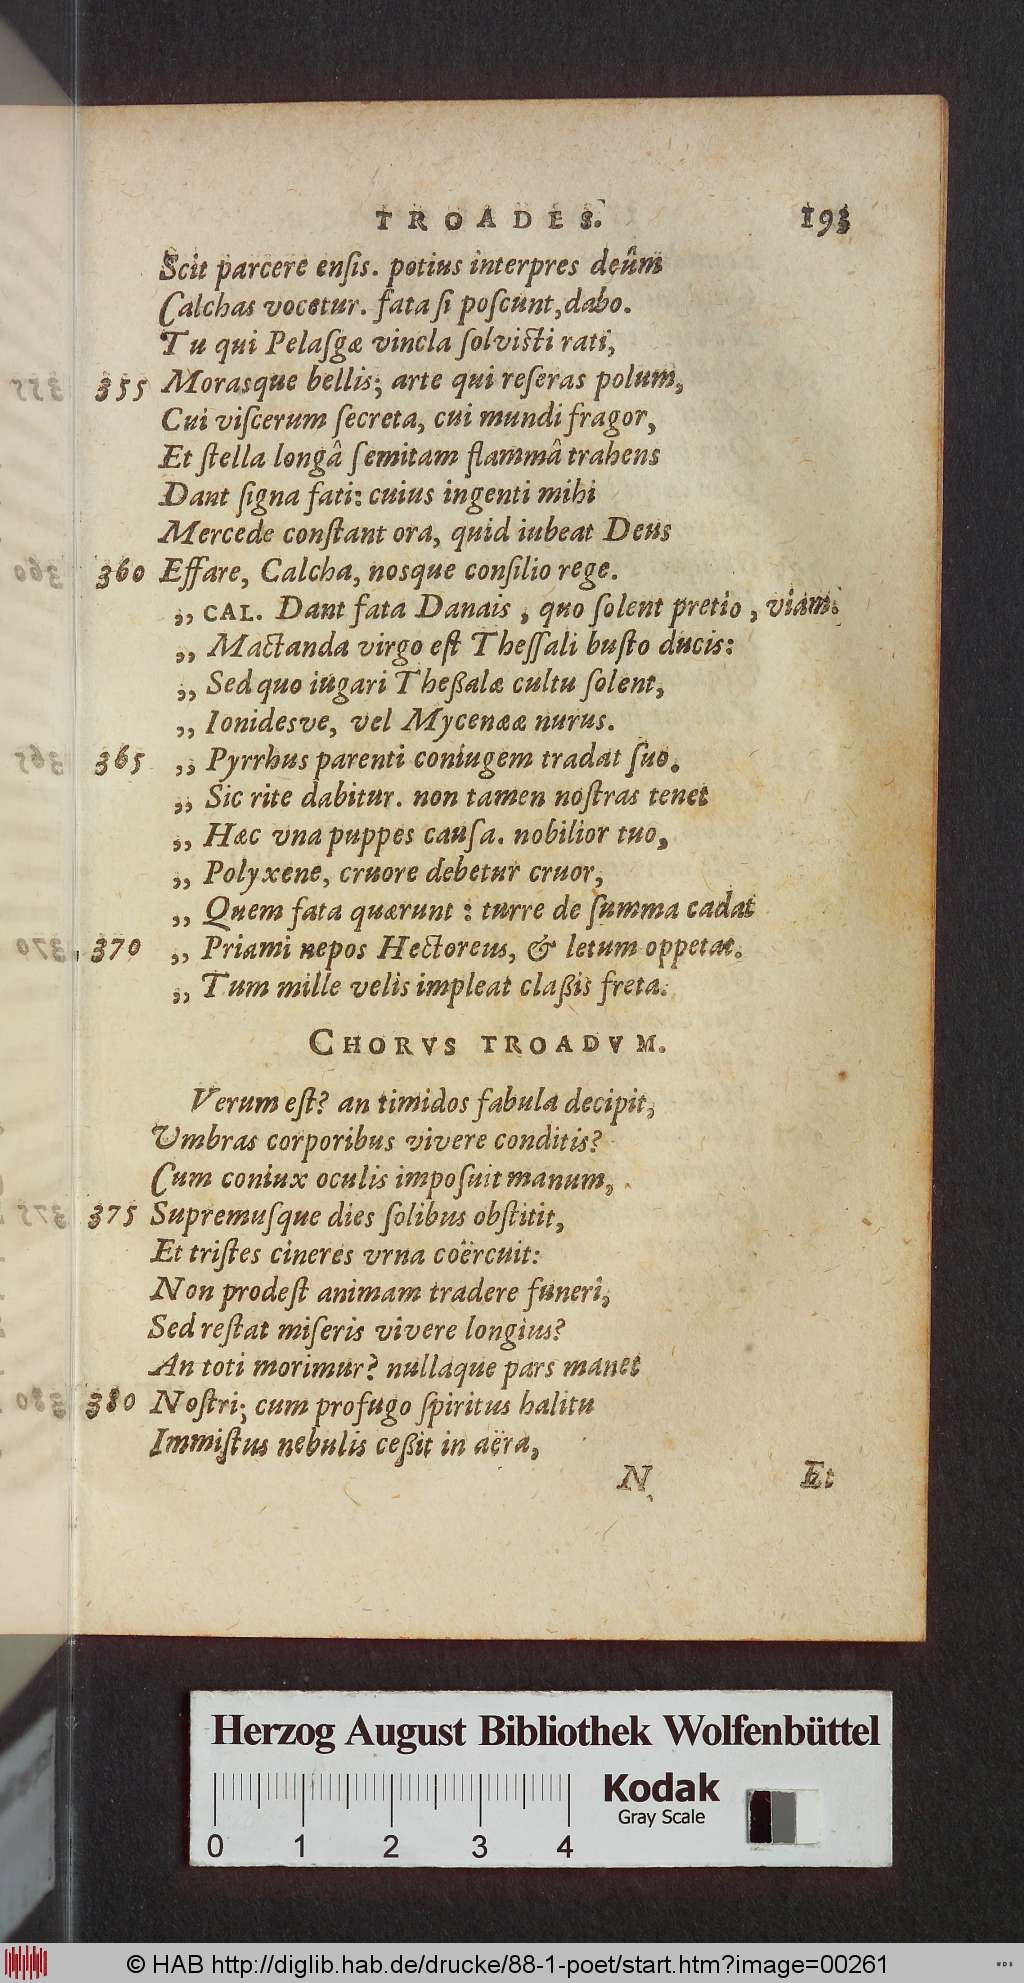 TROADES. 193
Scit parcere ensis. potius interpres deûm
Calchas vocetur. fata si poscunt, dabo.
Tu qui Pelasgæ vincla solvisti rati,
355 Morasque bellis; arte qui reseras polum,
Cui viscerum secreta, cui mundi fragor,
Et stella longâ semitam flammâ trahens
Dant signa fati: cuius ingenti mihi
Mercede constant ora, quid iubeat Deus
360 Effare, Calcha, nosque consilio rege.
„ CAL. Dant fata Danais, quo solent pretio, viam.
„ Mactanda virgo est Thessali busto ducis:
„ Sed quo iugari Theßalæ cultu solent,
„ Ionidesve, vel Mycenææ nurus.
365 „ Pyrrhus parenti coniugem tradat suo.
„ Sic rite dabitur. non tamen nostras tenet
„ Hæc vna puppes causa. nobilior tuo,
„ Polyxene, cruore debetur cruor,
„ Quem fata quærunt: turre de summa cadat
370 „ Priami nepos Hectoreus, & letum oppetat.
„ Tum mille velis impleat claßis freta.
CHORVS TROADVM.
Verum est? an timidos fabula decipit,
Umbras corporibus vivere conditis?
Cum coniux oculis imposuit manum,
375 Supremusque dies solibus obstitit,
Et tristes cineres vrna coërcuit:
Non prodest animam tradere funeri,
Sed restat miseris vivere longius?
An toti morimur? nullaque pars manet
380 Nostri; cum profugo spiritus halitu
Immistus nebulis ceßit in aëra,
N Et
Herzog August Bibliothek Wolfenbüttel
Kodak
Gray Scale
0 1 2 3 4
© HAB http://diglib.hab.de/drucke/88-1-poet/start.htm?image=00261